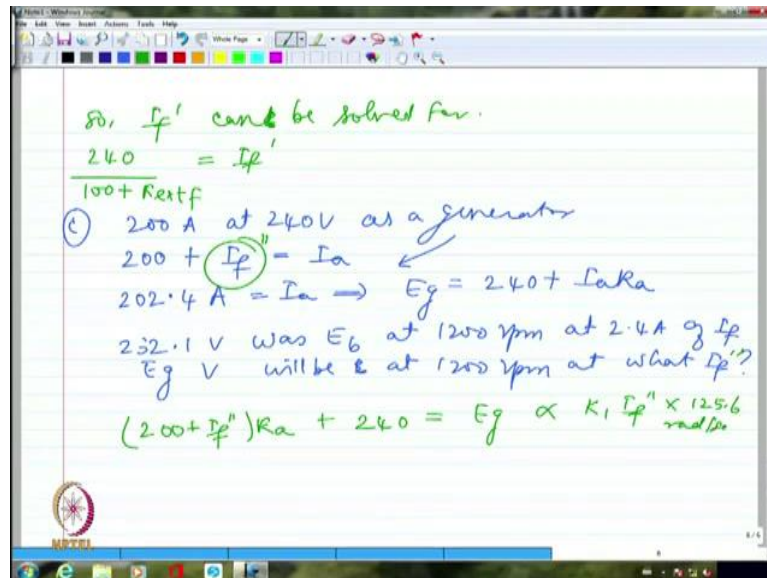 Note1 - Windows Journal
File Edit View Insert Actions Tools Help
Whole Page
So, If' can be solved for.
240
= If'
100 + Rextf
C 200 A at 240V as a generator
200 + If" = Ia
202.4 A = Ia ⇒ Eg = 240 + IaRa
232.1 V was Eb at 1200 rpm at 2.4A of If
Eg V will be at 1200 rpm at what If"?
(200+If")Ra + 240 = Eg ∝ K1 If" × 125.6
rad/sec
NPTEL
6/6
6